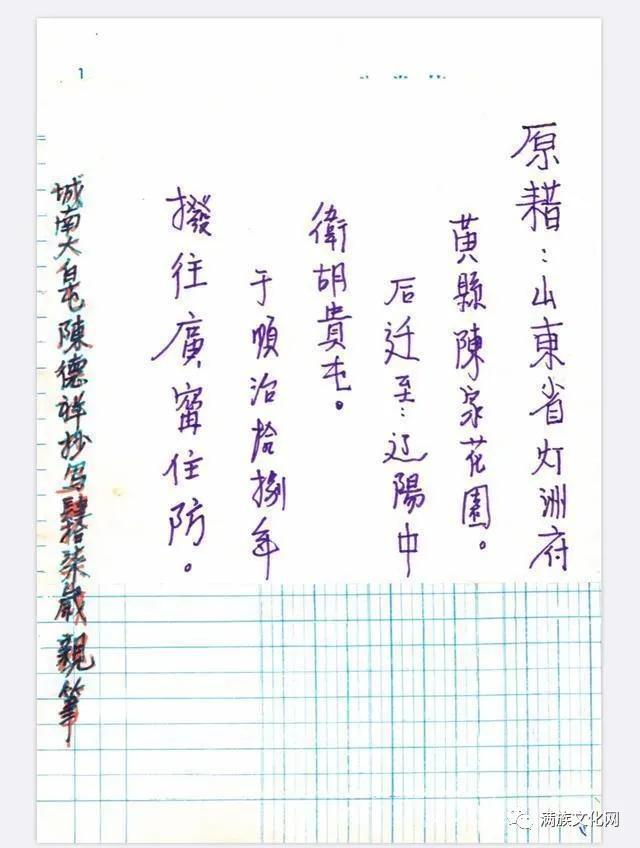 原耤：山東省灯洲府
黄縣陳家花園。
后迁至：辽陽中
衛胡貴屯。
于順治拾捌年
撥往廣甯住防。
城南大白屯陳德祥抄写肆拾柒歲親筆
1
满族文化网